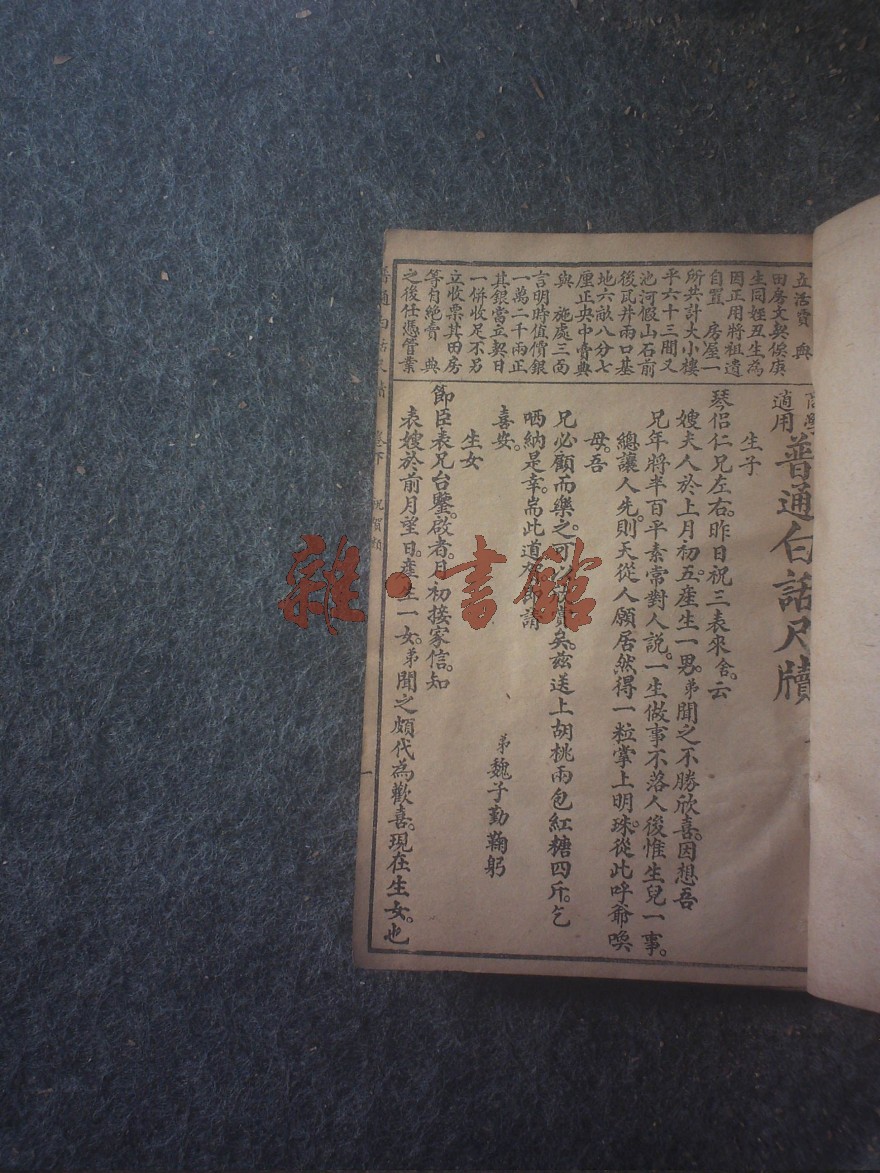 立活賣典
田房文契俟庚
生同姪丑生為
因正用將祖遺
自置房屋一
所共計大小樓
平六十三間又
池河假山石前
後瓦井兩口基
地六畝八分七
厘正央中賣典
與施處三面
言明時值價銀
一萬二千兩正
其銀當立契日
一併收足不另
立收票其田房
等自絶賣典
之後任憑管業
適用普通白話尺牘
生子
琴侶仁兄左右。昨日祝三表來舍。云
嫂夫人於上月初五産生一男。弟聞之不勝欣喜。因想吾
兄年將半百平素常對人説。一生做事不落人後惟生兒一事。
總讓人先。則天從人願居然得一粒掌上明珠。從此呼爺喚
母。吾
兄必顧而樂之。可賀矣。茲送上胡桃兩包紅糖四斤。乞
哂納是幸。耑此道賀即請
喜安。
弟魏子勤鞠躬
生女
節臣表兄台鑒。啟者。月初接家信。知
表嫂於前月望日。産生一女。弟聞之頗代為歡喜。現在生女。也
普通白話尺牘 卷下 祝賀類 一
雜·書館